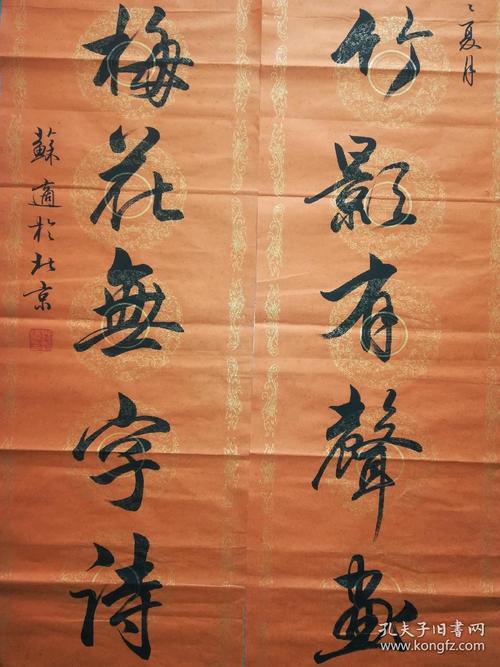 夏月
竹影有聲畫
梅花無字詩
蘇適於北京
孔夫子旧书网
www.kongfz.com